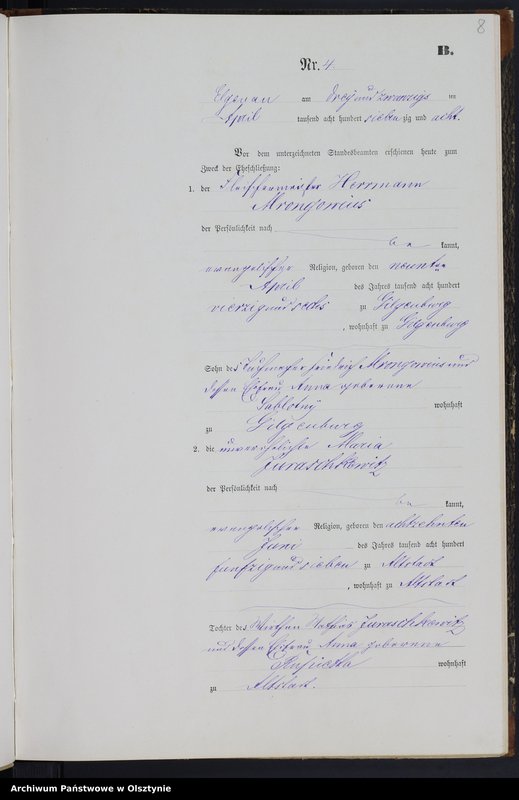 8
B.
Nr. 4
Elgenau am drey und zwanzigs ten
April tausend acht hundert siebenzig und acht.
Vor dem unterzeichneten Standesbeamten erschienen heute zum
Zweck der Eheschließung:
1. der Fleischermeister Herrmann
Mrongowius
der Persönlichkeit nach
be kannt,
evangelischer Religion, geboren den neunten
April des Jahres tausend acht hundert
vierzig und sechs zu Gilgenburg
, wohnhaft zu Gilgenburg
Sohn des Tuchmacher Friedrich Mrongowius und
dessen Ehefrau Anna geborene
wohnhaft
zu Gilgenburg
2. die unverehelichte Maria
Juraschkewitz
der Persönlichkeit nach
be kannt,
evangelischer Religion, geboren den achtzehnten
Juni des Jahres tausend acht hundert
funfzig und sieben zu Altstadt
, wohnhaft zu Altstadt
Tochter des Juraschkewitz
und dessen Ehefrau Anna geborene
wohnhaft
zu Altstadt.
Archiwum Państwowe w Olsztynie